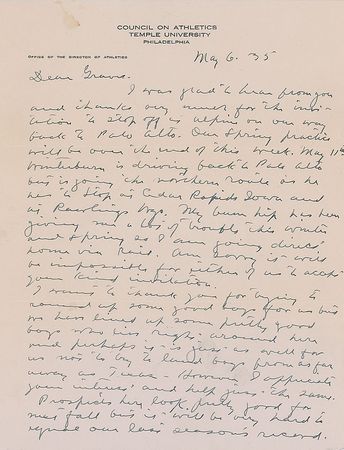 COUNCIL ON ATHLETICS
TEMPLE UNIVERSITY
PHILADELPHIA
OFFICE OF THE DIRECTOR OF ATHLETICS
May 6. 35
Dear
I was glad to hear from you
and thanks very much for the invi-
tation to stop off at alpine on our way
back to Palo Alto. Our Spring practice
will be over the end of this week. May 11th
Winterburn is driving back to Palo Alto
but is going the northern route as he
has to stop at Cedar Rapids Iowa and
at Rawlings Wyo. My bum hip has been
giving me a lot of trouble this winter
and spring so I am going direct
home via rail. Am sorry it will
be impossible for either of us to accept
your kind invitation.
I want to thank you for trying to
round up some good boys for us but
we have lined up some pretty good
boys who live right around here
and perhaps it is just as well for
us not to try to land boys from as far
away as Texas. However I appreciate
your interest and help just the same.
Prospects here look pretty good for
next fall but it will be very hard to
equal our last season's record.